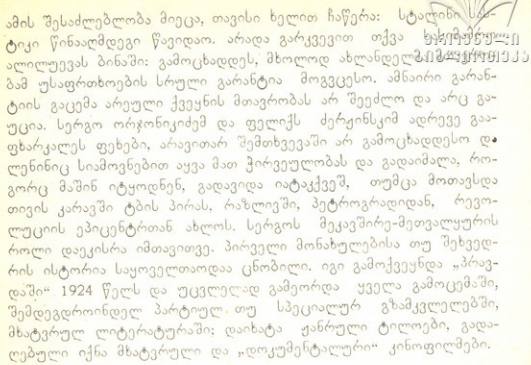 ამის შესაძლებლობა მიეცა, თავისი ხელით ჩაწერა: სტალინი
ტიკი წინააღმდეგი წავიდაო. არადა გარკვევით თქვა
ალილუევას ბინაში: გამოცხადდეს, მხოლოდ ახლანდელმა
ბამ უსაფრთხოების სრული გარანტია მოგვცესო. ამნაირი გარან-
ტიის გაცემა არეული ქვეყნის მთავრობას არ შეეძლო და არც გა-
უცია. სერგო ორჯონიკიძემ და ფელიქს ძერჟინსკიმ ადრევე გაა-
ფხარკალეს ფეხები, არავითარ შემთხვევაში არ გამოცხადდესო და
ლენინიც სიამოვნებით აყვა მათ ჭირვეულობას და გადაიმალა, რო-
გორც მაშინ იტყოდნენ, გადავიდა იატაკქვეშ, თუმცა მოთავსდა
თივის კარავში ტბის პირას, რაზლივში, პეტროგრადიდან, რევო-
ლუციის ეპიცენტრთან ახლოს. სერგოს მეკავშირე-მეთვალყურის
როლი დაეკისრა იმთავითვე. პირველი მონახულებისა თუ შეხვედ-
რის ისტორია საყოველთაოდაა ცნობილი. იგი გამოქვეყნდა „პრავ-
დაში“ 1924 წელს და უცვლელად გამეორდა ყველა გამოცემაში,
შემდეგდროინდელ პარტიულ თუ სპეციალურ გზამკვლელებში,
მხატვრულ ლიტერატურაში; დაიხატა ჟანრული ტილოები, გადა-
ღებული იქნა მხატვრული და „დოკუმენტალური“ კინოფილმები.